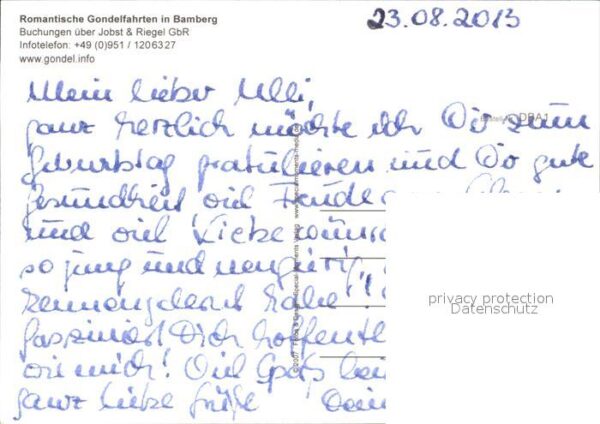 Romantische Gondelfahrten in Bamberg
Buchungen über Jobst & Riegel GbR
Infotelefon: +49 (0)951 / 1206327
www.gondel.info
23.08.2013
Mein lieber Ulli,
ganz herzlich möchte ich Dir zum
Geburtstag gratulieren und Dir gute
Gesundheit viel Freude
und viel Liebe
so jung und neugierig
kennengelernt habe!
fasziniert Dich
wie mich! Viel Spaß
ganz liebe Grüße Dein
privacy protection
Datenschutz